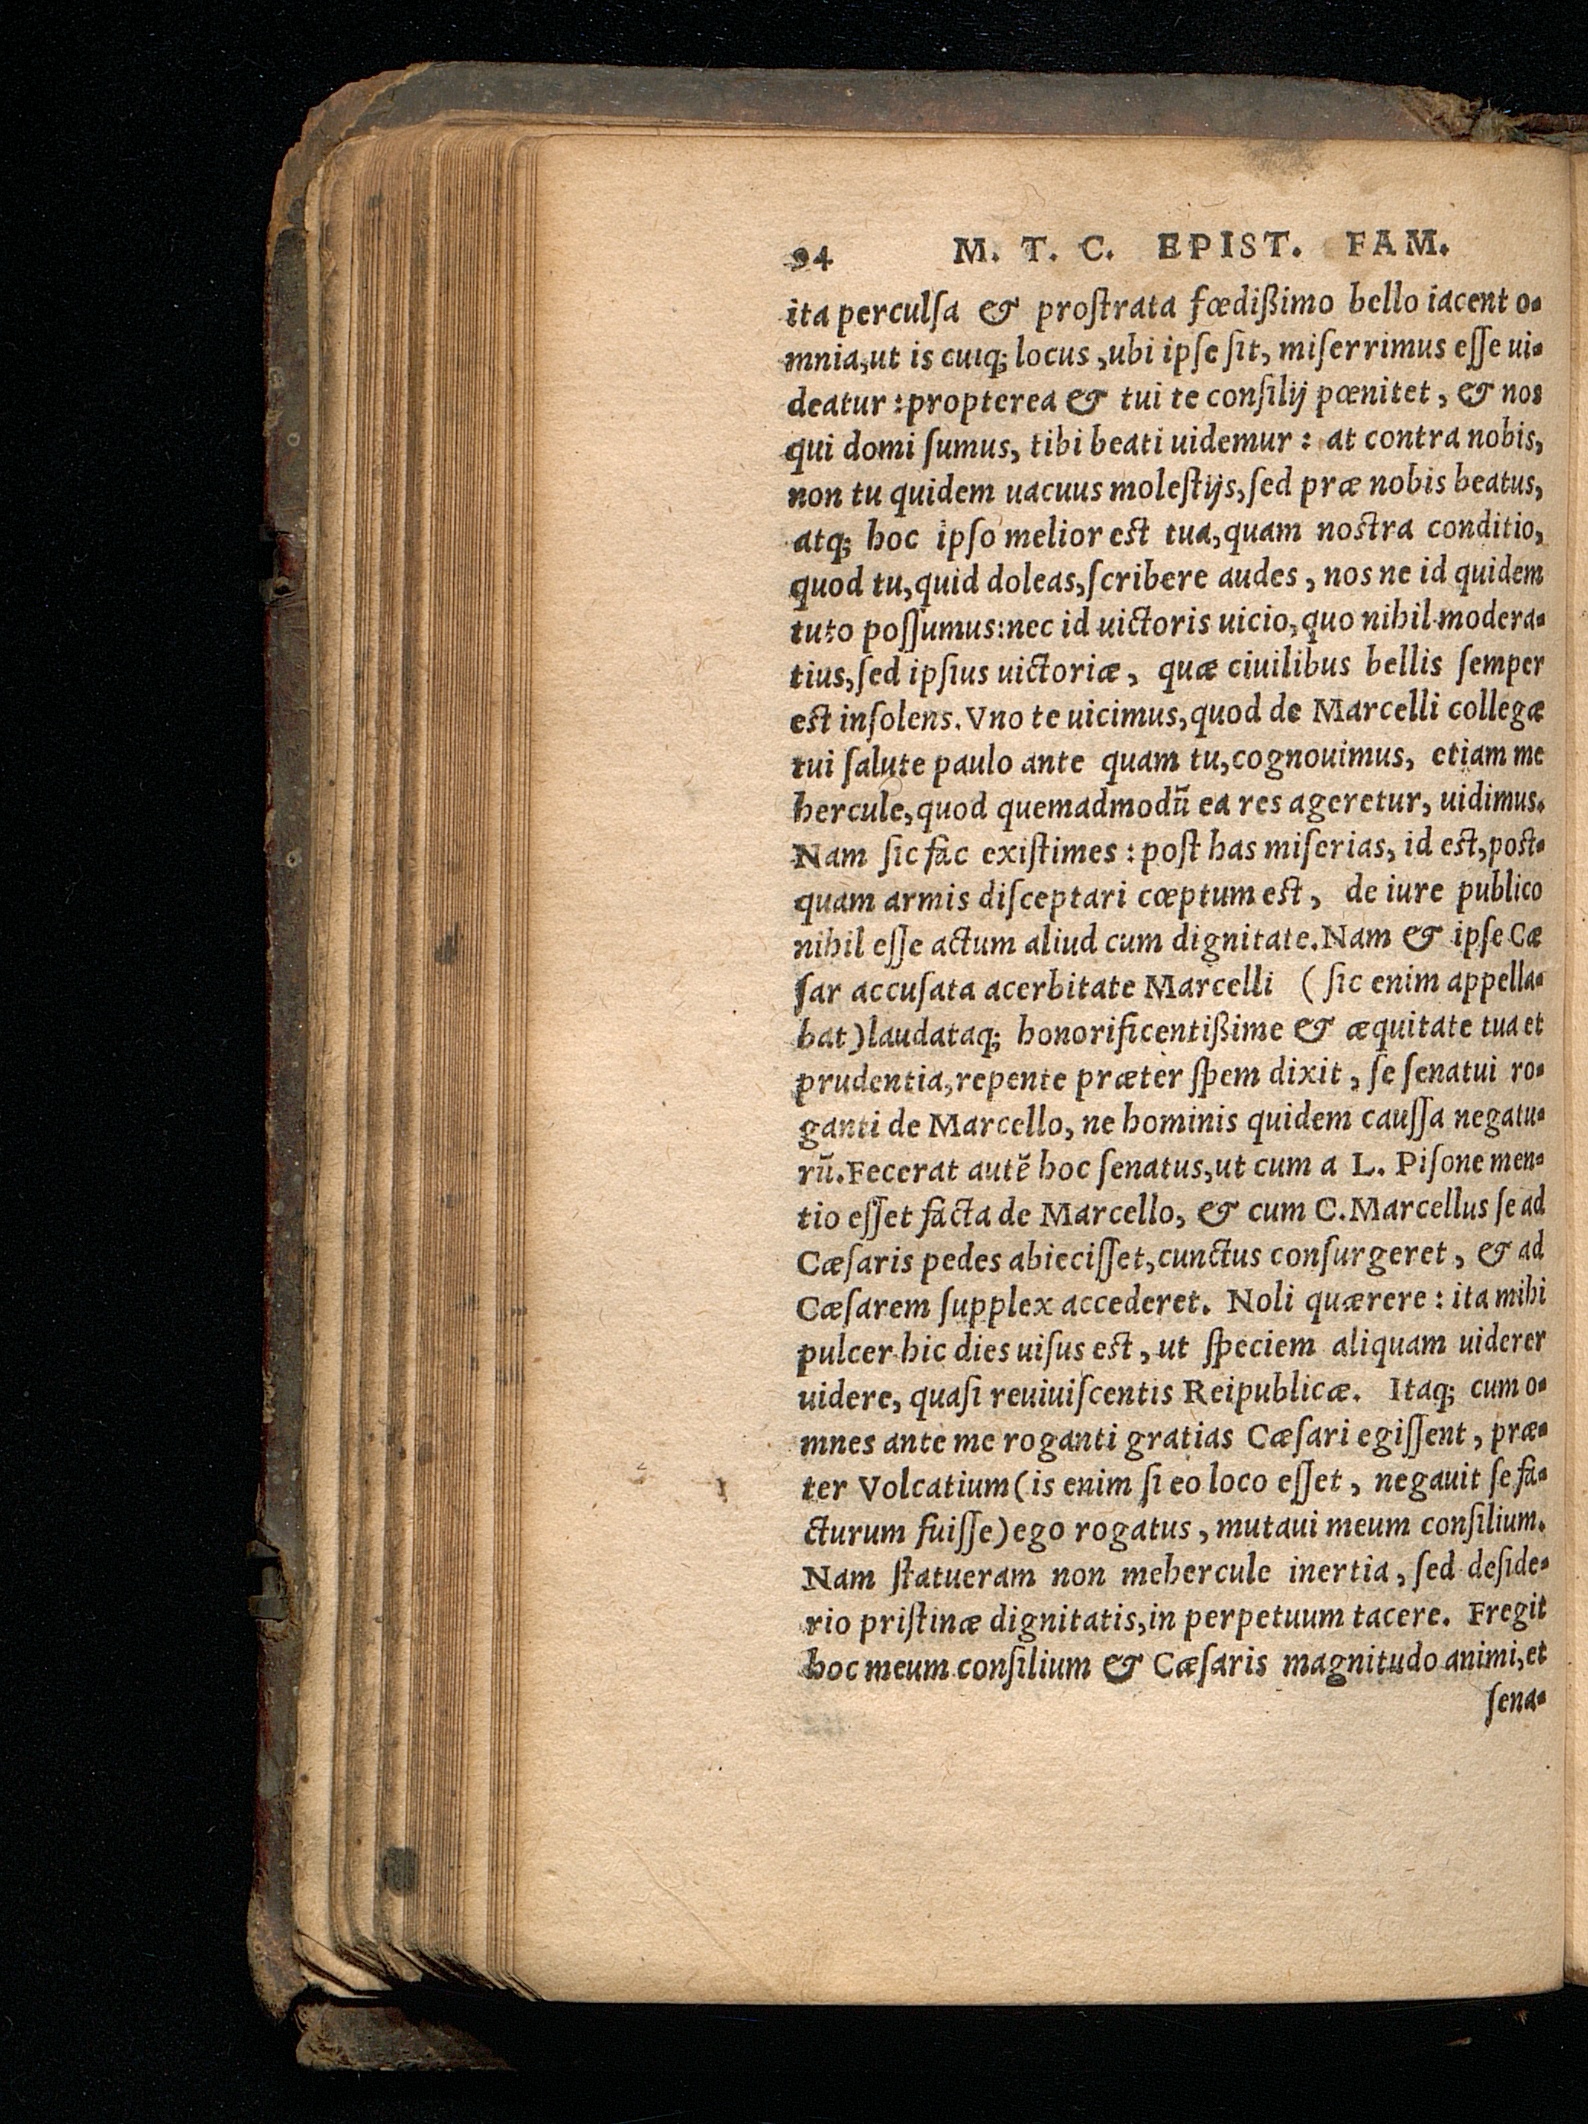 94 M. T. C. EPIST. FAM.
ita perculſa & proſtrata fœdißimo bello iacent o-
mnia, ut is cuiq; locus, ubi ipſe ſit, miſerrimus eſſe ui-
deatur: propterea & tui te conſilij pœnitet, & nos
qui domi ſumus, tibi beati uidemur: at contra nobis,
non tu quidem uacuus moleſtijs, ſed præ nobis beatus,
atq; hoc ipſo melior eſt tua, quam noſtra conditio,
quod tu, quid doleas, ſcribere audes, nos ne id quidem
tuto poſſumus: nec id uictoris uicio, quo nihil modera-
tius, ſed ipſius uictoriæ, quæ ciuilibus bellis ſemper
eſt inſolens. Vno te uicimus, quod de Marcelli collegæ
tui ſalute paulo ante quam tu, cognouimus, etiam me
hercule, quod quemadmodū ea res ageretur, uidimus.
Nam ſic fac exiſtimes: poſt has miſerias, id eſt, poſt-
quam armis diſceptari cœptum eſt, de iure publico
nihil eſſe actum aliud cum dignitate. Nam & ipſe Cæ
ſar accuſata acerbitate Marcelli (ſic enim appella-
bat) laudataq; honorificentißime & æquitate tua et
prudentia, repente præter ſpem dixit, ſe ſenatui ro-
ganti de Marcello, ne hominis quidem cauſſa negatu-
rū. Fecerat autē hoc ſenatus, ut cum a L. Piſone men-
tio eſſet facta de Marcello, & cum C. Marcellus ſe ad
Cæſaris pedes abieciſſet, cunctus conſurgeret, & ad
Cæſarem ſupplex accederet. Noli quærere: ita mihi
pulcer hic dies uiſus eſt, ut ſpeciem aliquam uiderer
uidere, quaſi reuiuiſcentis Reipublicæ. Itaq; cum o-
mnes ante me roganti gratias Cæſari egiſſent, præ-
ter Volcatium (is enim ſi eo loco eſſet, negauit ſe fa-
cturum fuiſſe) ego rogatus, mutaui meum conſilium.
Nam ſtatueram non mehercule inertia, ſed deſide-
rio priſtinæ dignitatis, in perpetuum tacere. Fregit
hoc meum conſilium & Cæſaris magnitudo animi, et
ſena-